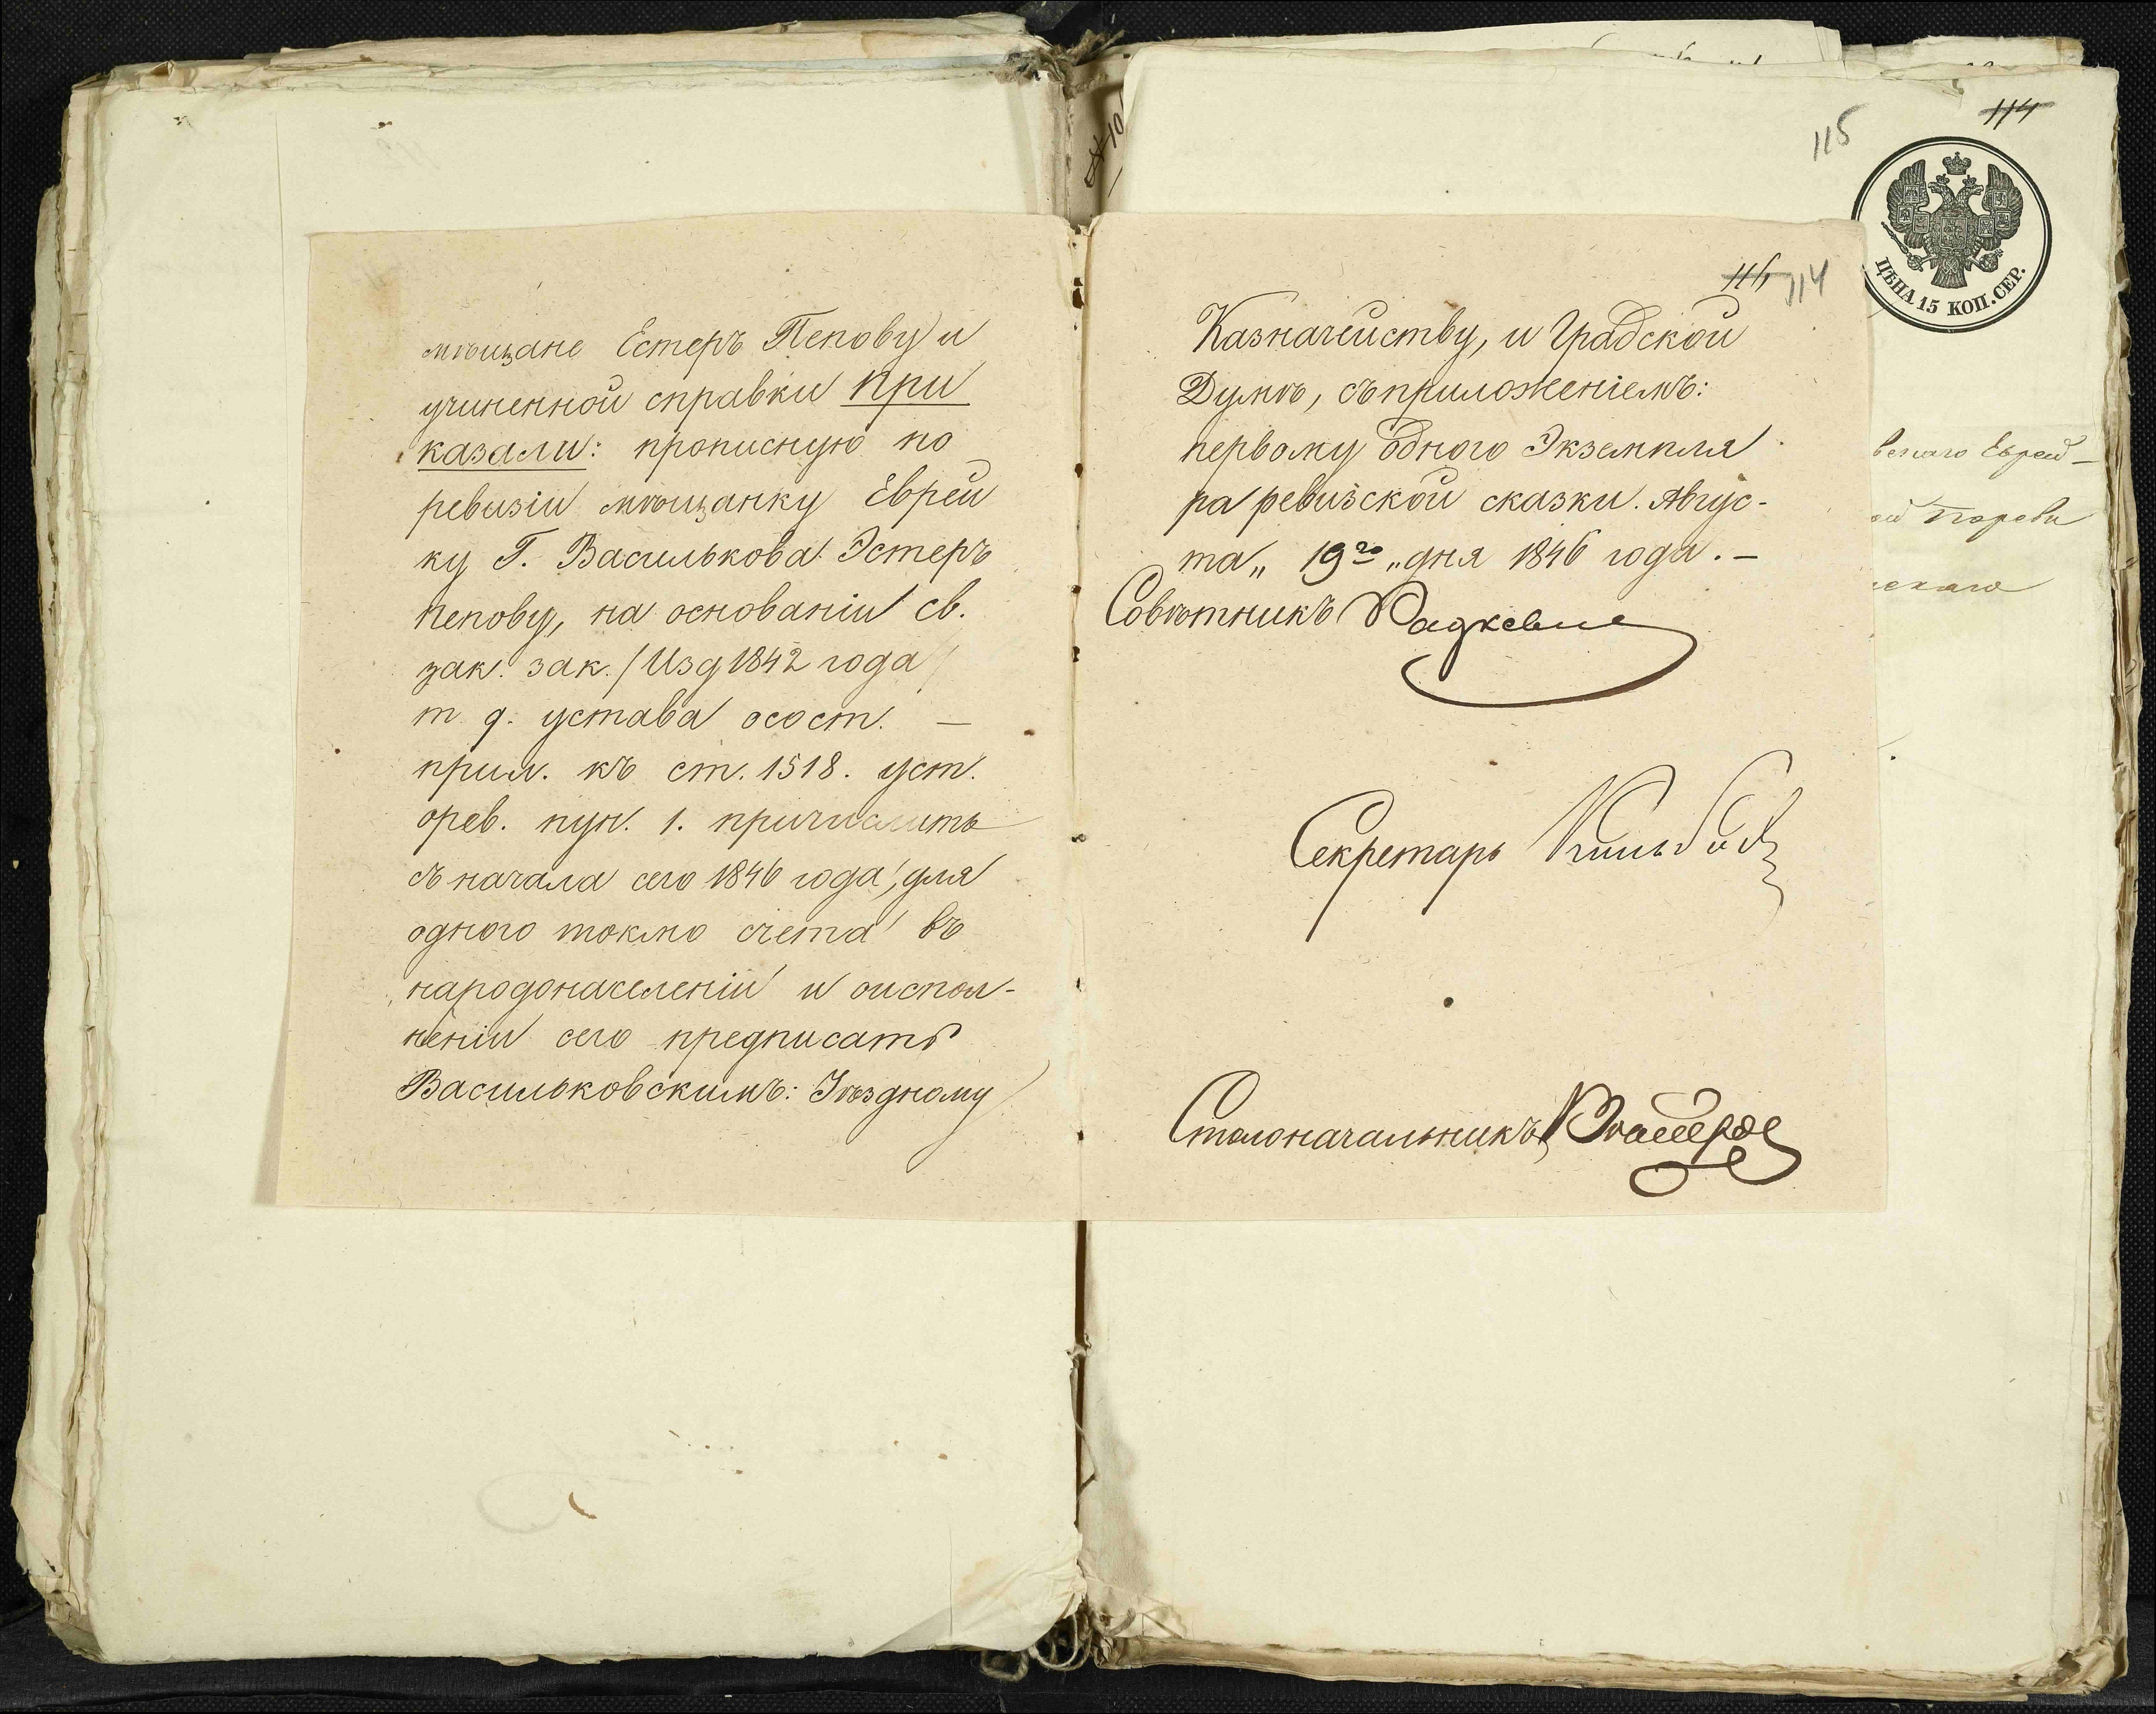 мѣщане Естеръ Пепову и
учиненной справки при
казали: прописную по
ревизіи мѣщанку Еврей
ку Г. Василькова Эстеръ
пепову, на основаніи св.
зак. зак. / Изд 1842 года /
т 9. устава осост. —
прил. къ ст. 1518. уст.
орев. пун. 1. причислить
съ начала сего 1846 года, для
одного токмо счета въ
народонаселеніи и оиспол-
неніи сего предписать
Васильковскимъ: Уѣздному
115
114
ЦѢНА 15 КОП. СЕР.
114
Казначейству, и Градской
Думѣ, съприложеніемъ:
первому одного Экземпля
ра ревизской сказки. Авгус-
та „ 19го „ дня 1846 года. —
Совѣтникъ Радкевич
Секретарь
Столоначальникъ
Еврей-